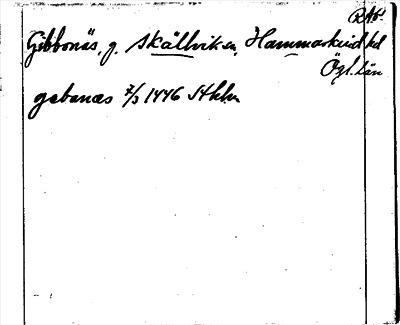 RAp.
Gibbonäs, g. Skällvik sn, Hammarkind hd
Ögl. län
gebenæs 7/3 1446 Sthlm